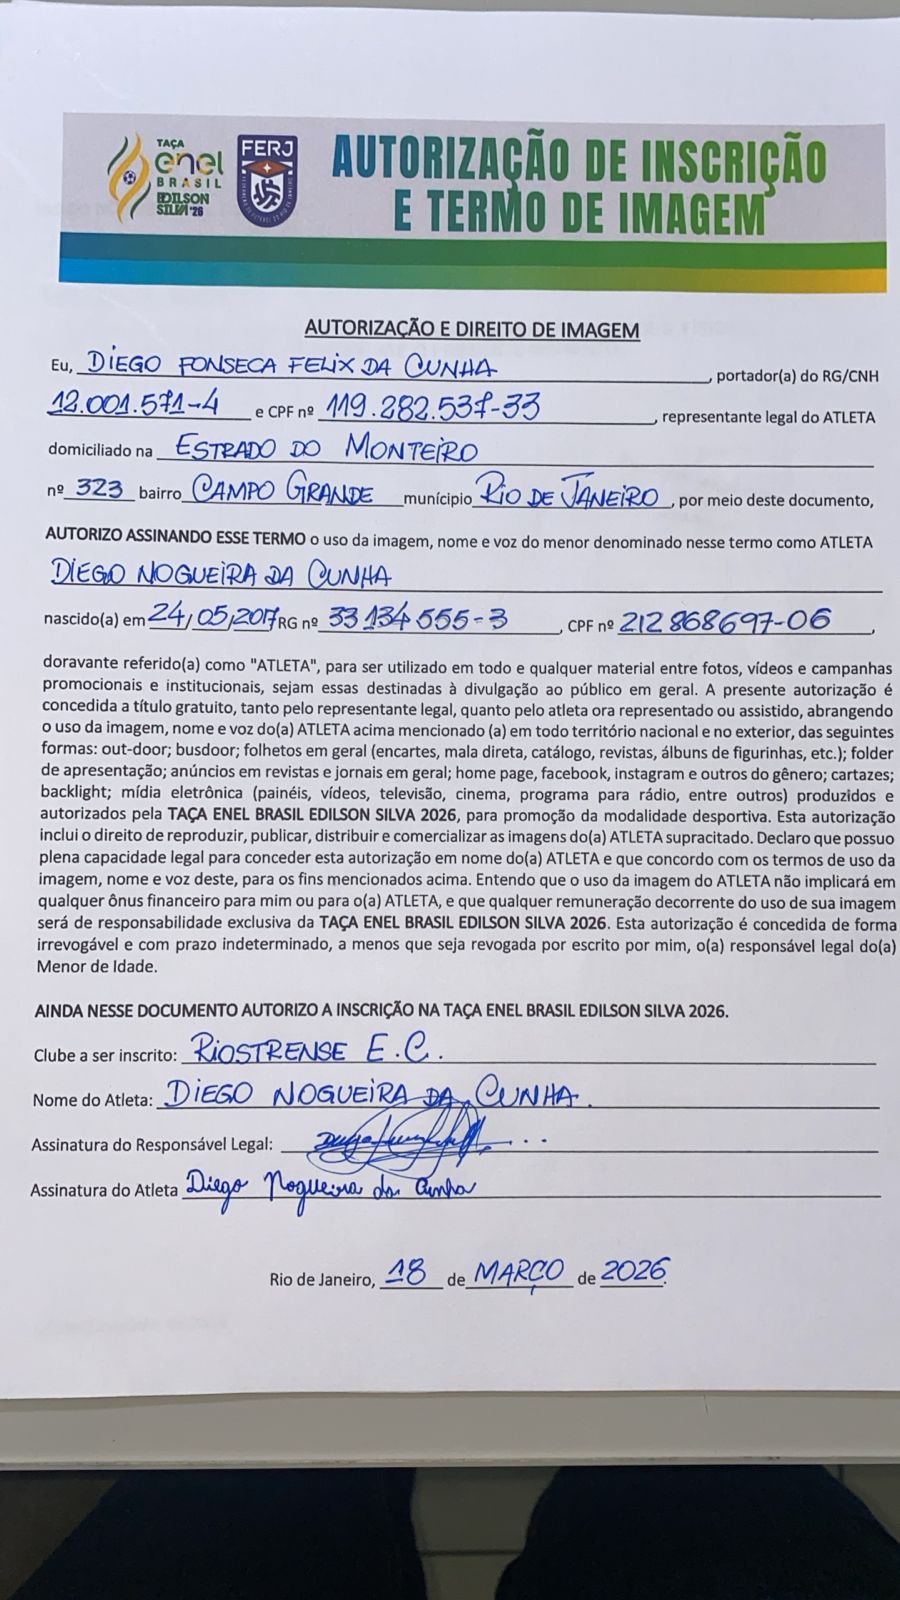 TAÇA
enel
BRASIL
EDILSON
SILVA '26
FERJ
AUTORIZAÇÃO DE INSCRIÇÃO
E TERMO DE IMAGEM
AUTORIZAÇÃO E DIREITO DE IMAGEM
Eu, DIEGO FONSECA FELIX DA CUNHA, portador(a) do RG/CNH
12.001.571-4 e CPF nº 119.282.537-33, representante legal do ATLETA
domiciliado na ESTRADO DO MONTEIRO
nº 323 bairro CAMPO GRANDE munícipio RIO DE JANEIRO, por meio deste documento,
AUTORIZO ASSINANDO ESSE TERMO o uso da imagem, nome e voz do menor denominado nesse termo como ATLETA
DIEGO NOGUEIRA DA CUNHA
nascido(a) em 24/05/2017 RG nº 33 134 555-3, CPF nº 212 868697-06,
doravante referido(a) como "ATLETA", para ser utilizado em todo e qualquer material entre fotos, vídeos e campanhas
promocionais e institucionais, sejam essas destinadas à divulgação ao público em geral. A presente autorização é
concedida a título gratuito, tanto pelo representante legal, quanto pelo atleta ora representado ou assistido, abrangendo
o uso da imagem, nome e voz do(a) ATLETA acima mencionado (a) em todo território nacional e no exterior, das seguintes
formas: out-door; busdoor; folhetos em geral (encartes, mala direta, catálogo, revistas, álbuns de figurinhas, etc.); folder
de apresentação; anúncios em revistas e jornais em geral; home page, facebook, instagram e outros do gênero; cartazes;
backlight; mídia eletrônica (painéis, vídeos, televisão, cinema, programa para rádio, entre outros) produzidos e
autorizados pela TAÇA ENEL BRASIL EDILSON SILVA 2026, para promoção da modalidade desportiva. Esta autorização
inclui o direito de reproduzir, publicar, distribuir e comercializar as imagens do(a) ATLETA supracitado. Declaro que possuo
plena capacidade legal para conceder esta autorização em nome do(a) ATLETA e que concordo com os termos de uso da
imagem, nome e voz deste, para os fins mencionados acima. Entendo que o uso da imagem do ATLETA não implicará em
qualquer ônus financeiro para mim ou para o(a) ATLETA, e que qualquer remuneração decorrente do uso de sua imagem
será de responsabilidade exclusiva da TAÇA ENEL BRASIL EDILSON SILVA 2026. Esta autorização é concedida de forma
irrevogável e com prazo indeterminado, a menos que seja revogada por escrito por mim, o(a) responsável legal do(a)
Menor de Idade.
AINDA NESSE DOCUMENTO AUTORIZO A INSCRIÇÃO NA TAÇA ENEL BRASIL EDILSON SILVA 2026.
Clube a ser inscrito: RIOSTRENSE E.C.
Nome do Atleta: DIEGO NOGUEIRA DA CUNHA.
Assinatura do Responsável Legal:
Assinatura do Atleta Diego Nogueira da Cunha
Rio de Janeiro, 18 de MARÇO de 2026.